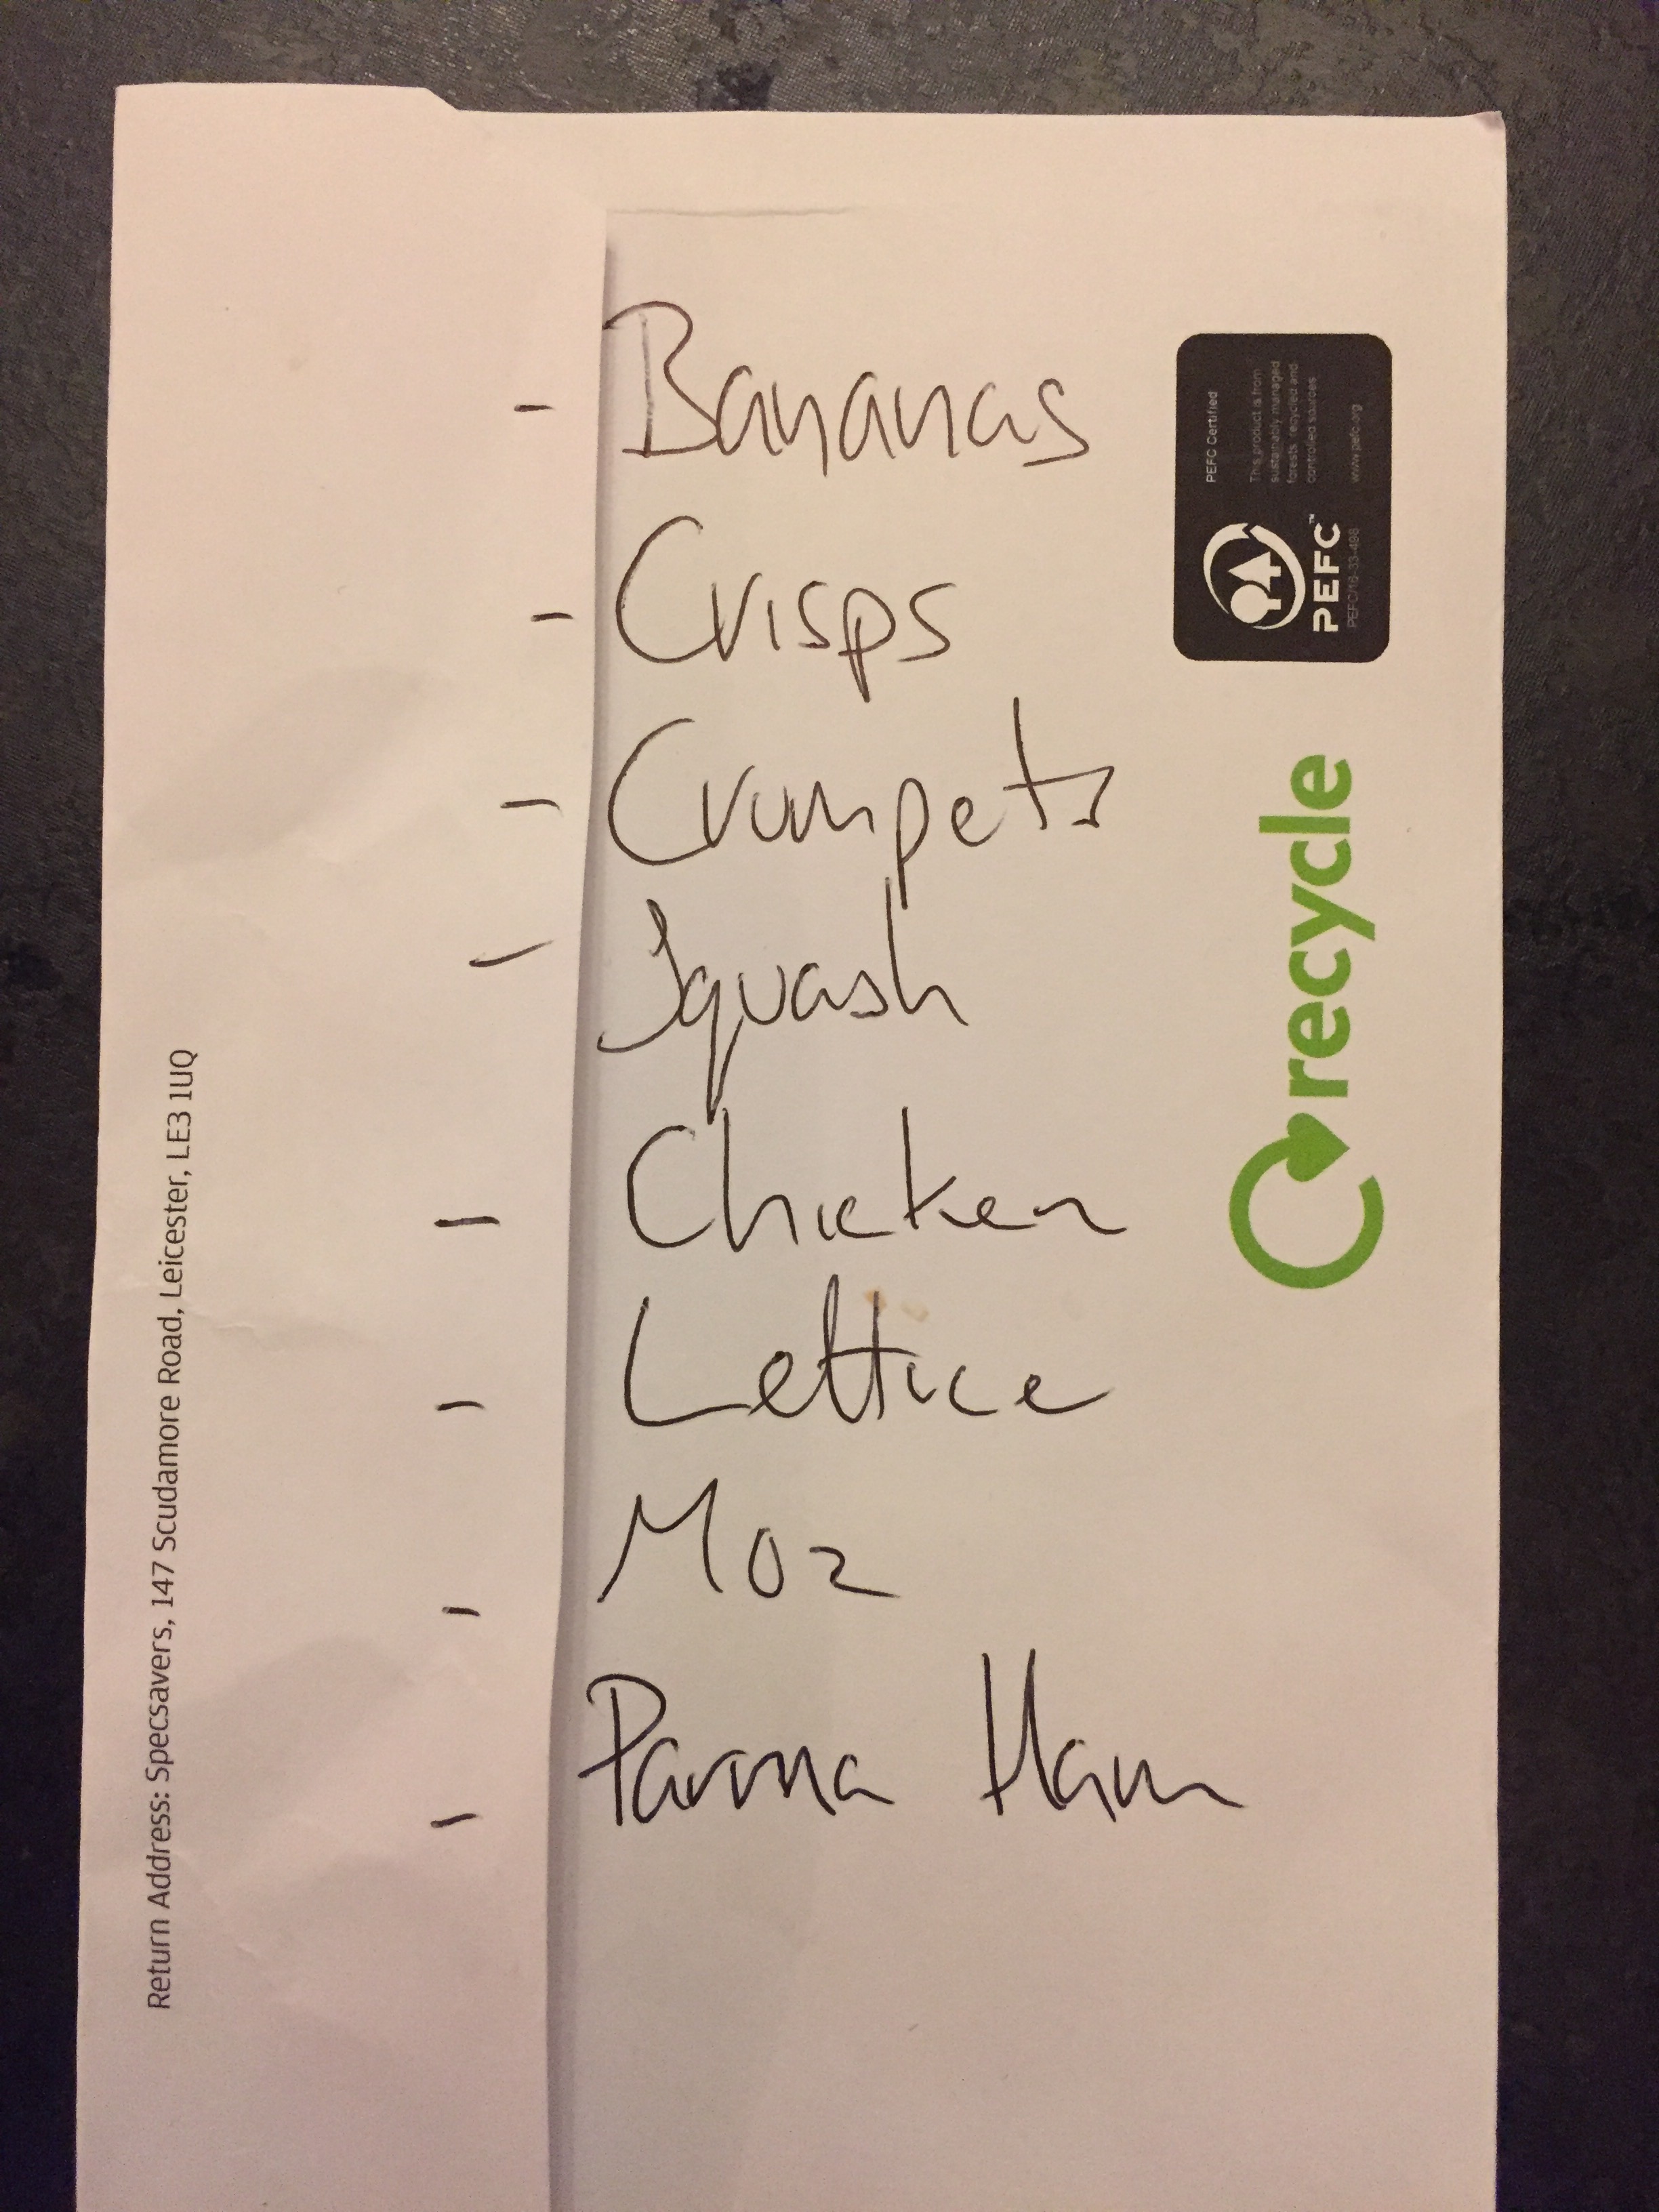 - Bananas
- Crisps
- Crumpets
- Squash
- Chicken
- Lettice
- Moz
- Parma Ham
Return Address: Specsavers, 147 Scudamore Road, Leicester, LE3 1UQ
PEFC Certified
This product is from
sustainably managed
forests, recycled and
controlled sources
www.pefc.org
PEFC™
PEFC/16-33-498
recycle